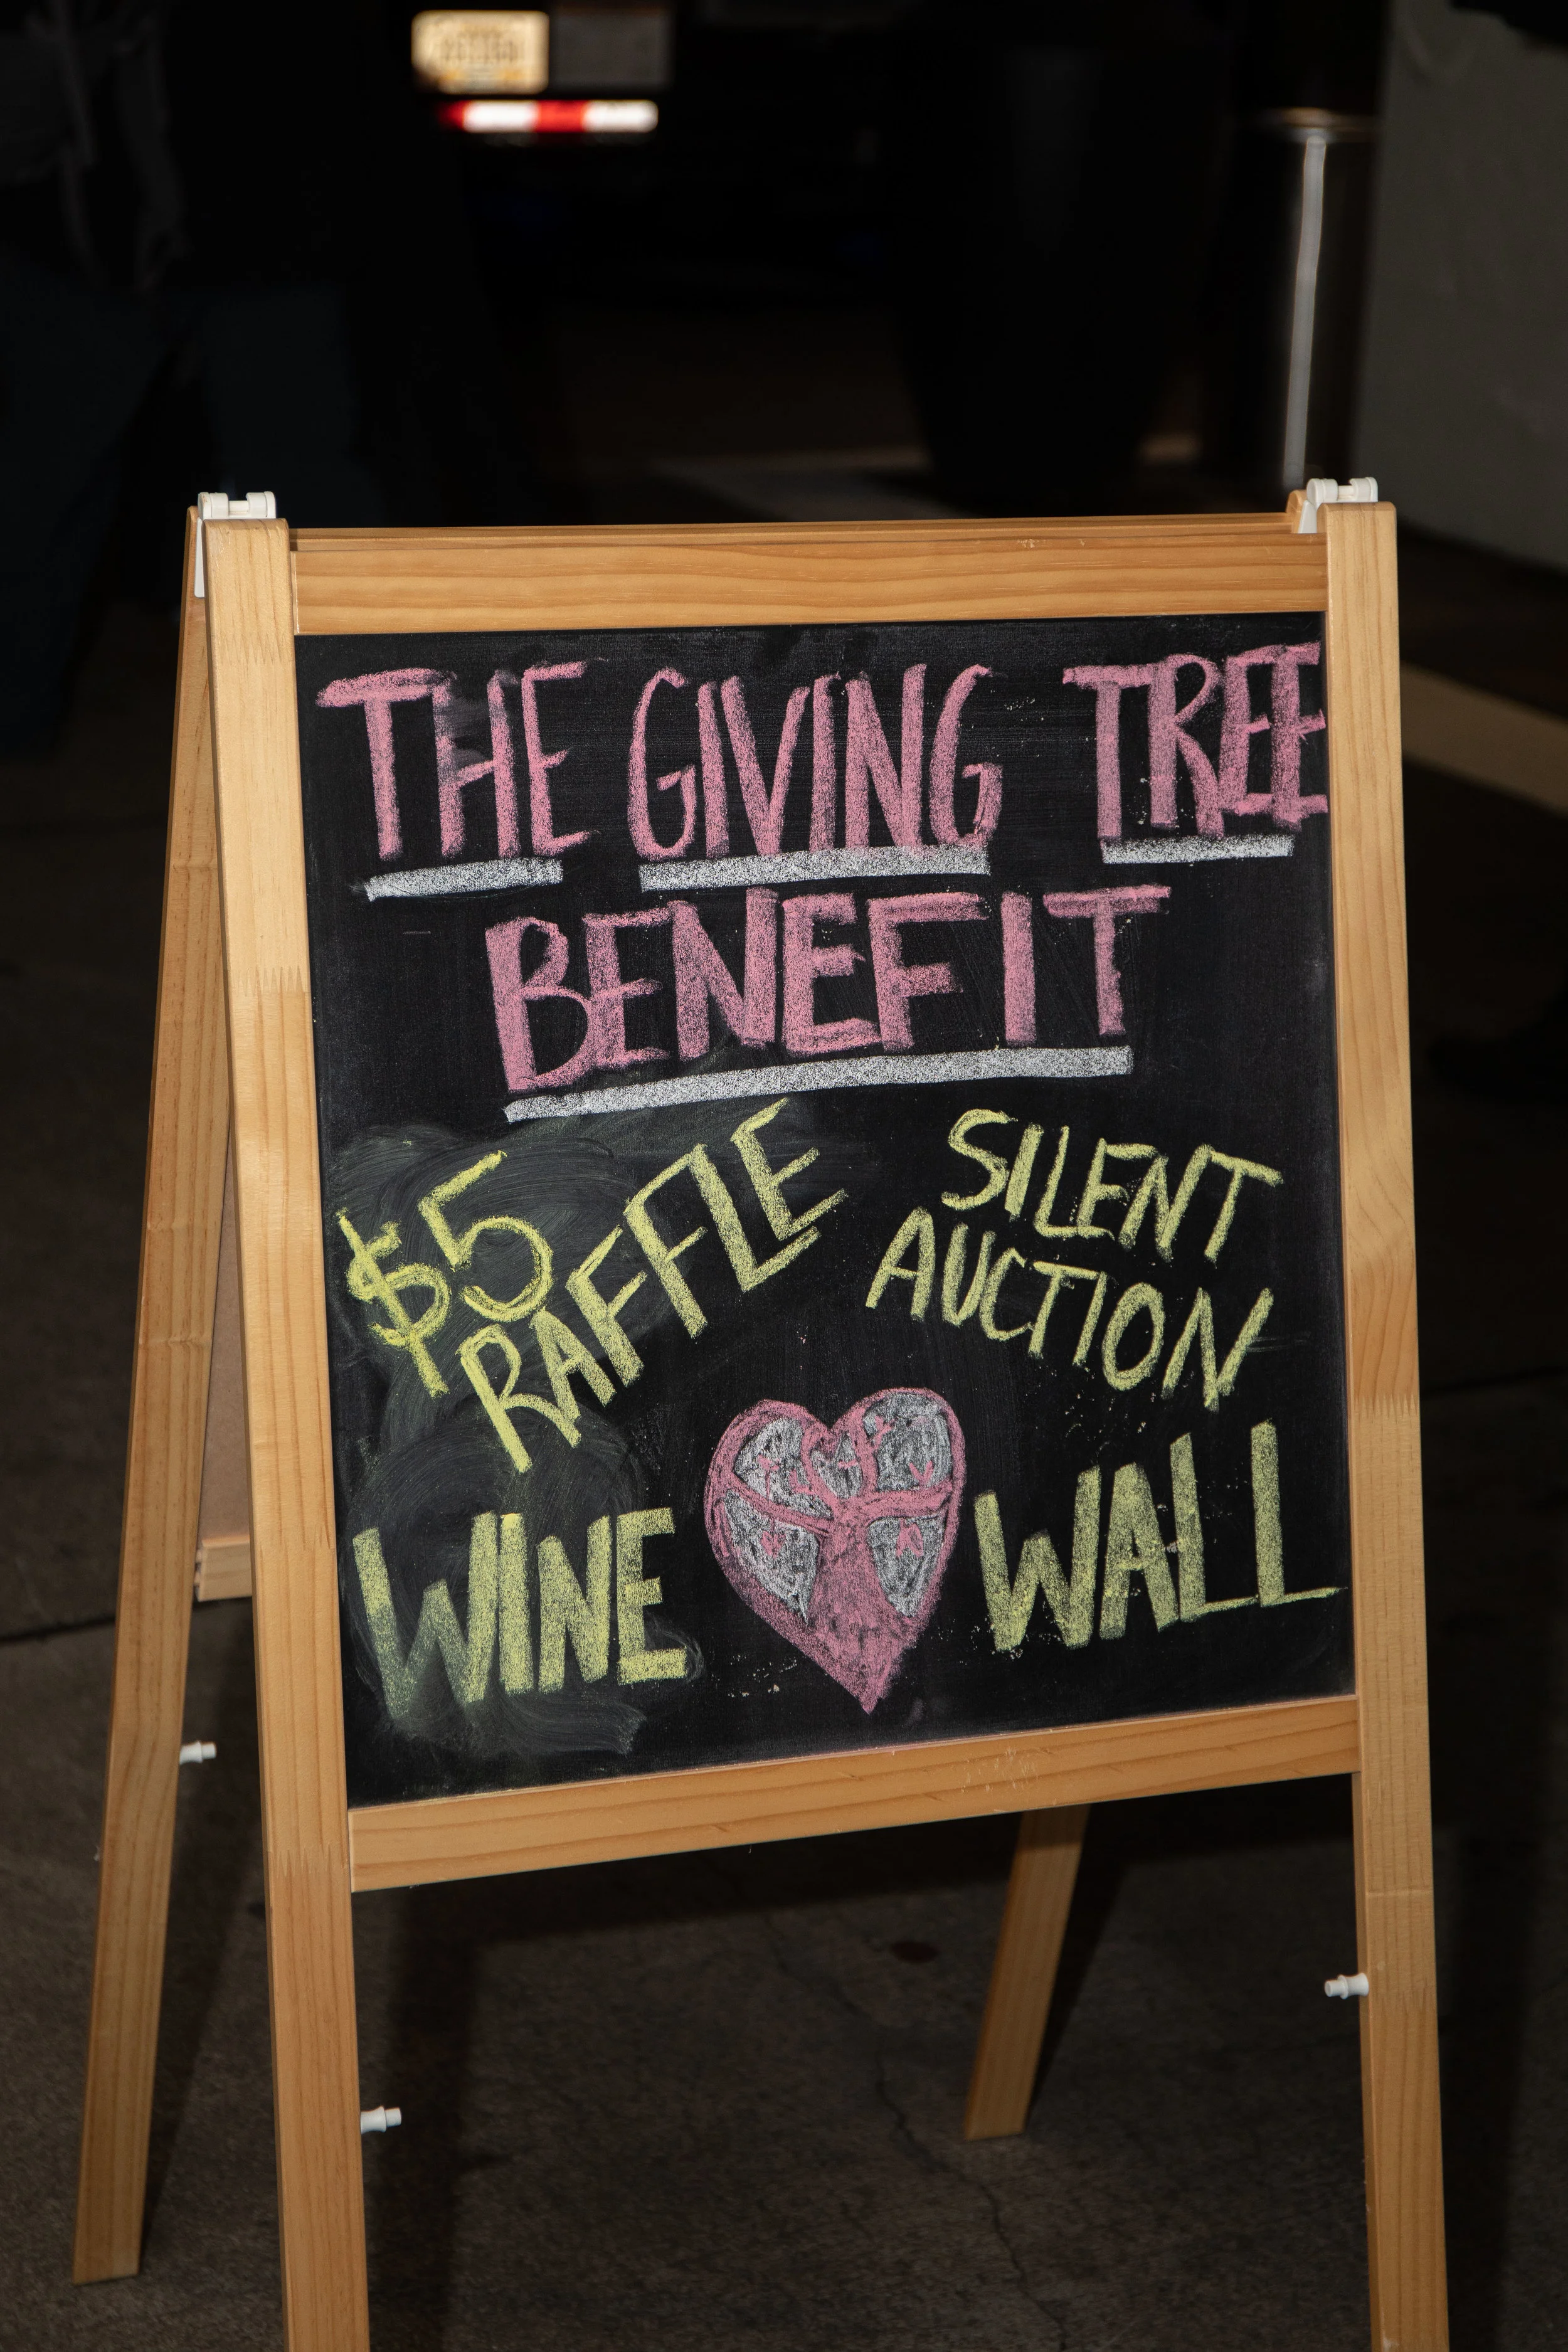 THE GIVING TREE
BENEFIT
$5
RAFFLE
SILENT
AUCTION
WINE WALL